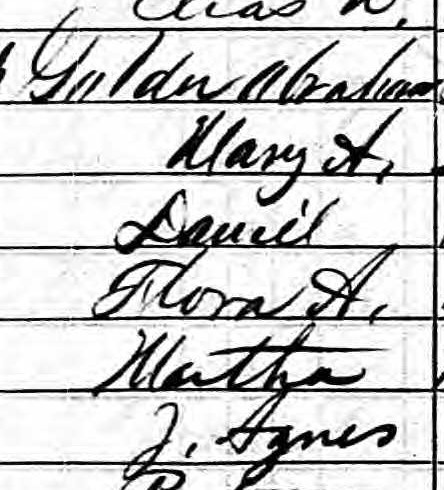 Elias W.
Golden Abraham
Mary A.
Daniel
Flora A.
Martha
J. Agnes